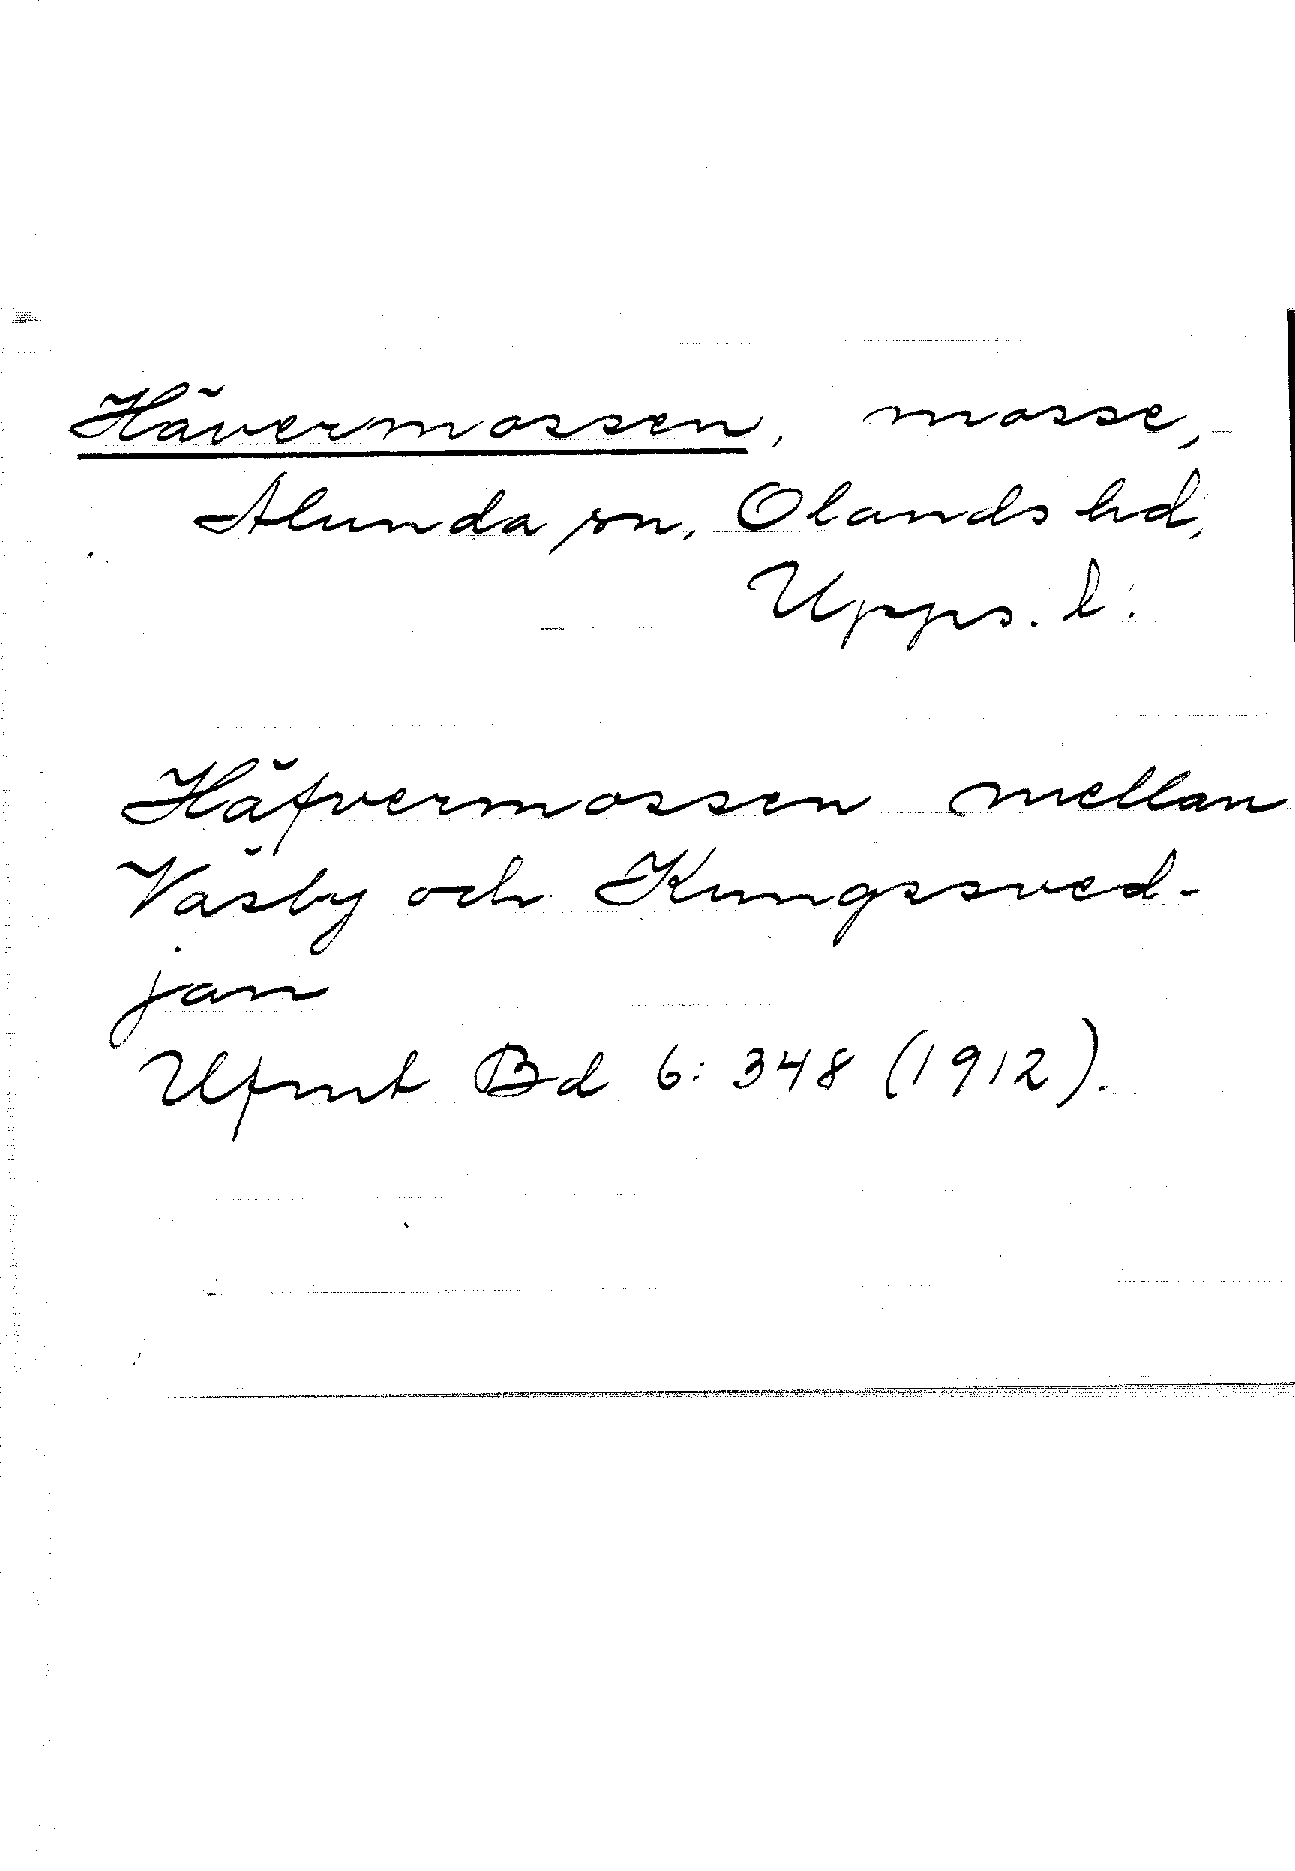 Hävermossen, mosse,
Alunda sn, Olands hd,
Upps. l.
Häfvermossen mellan
Väsby och Kungssved-
jan
Ufmt Bd 6: 348 (1912).